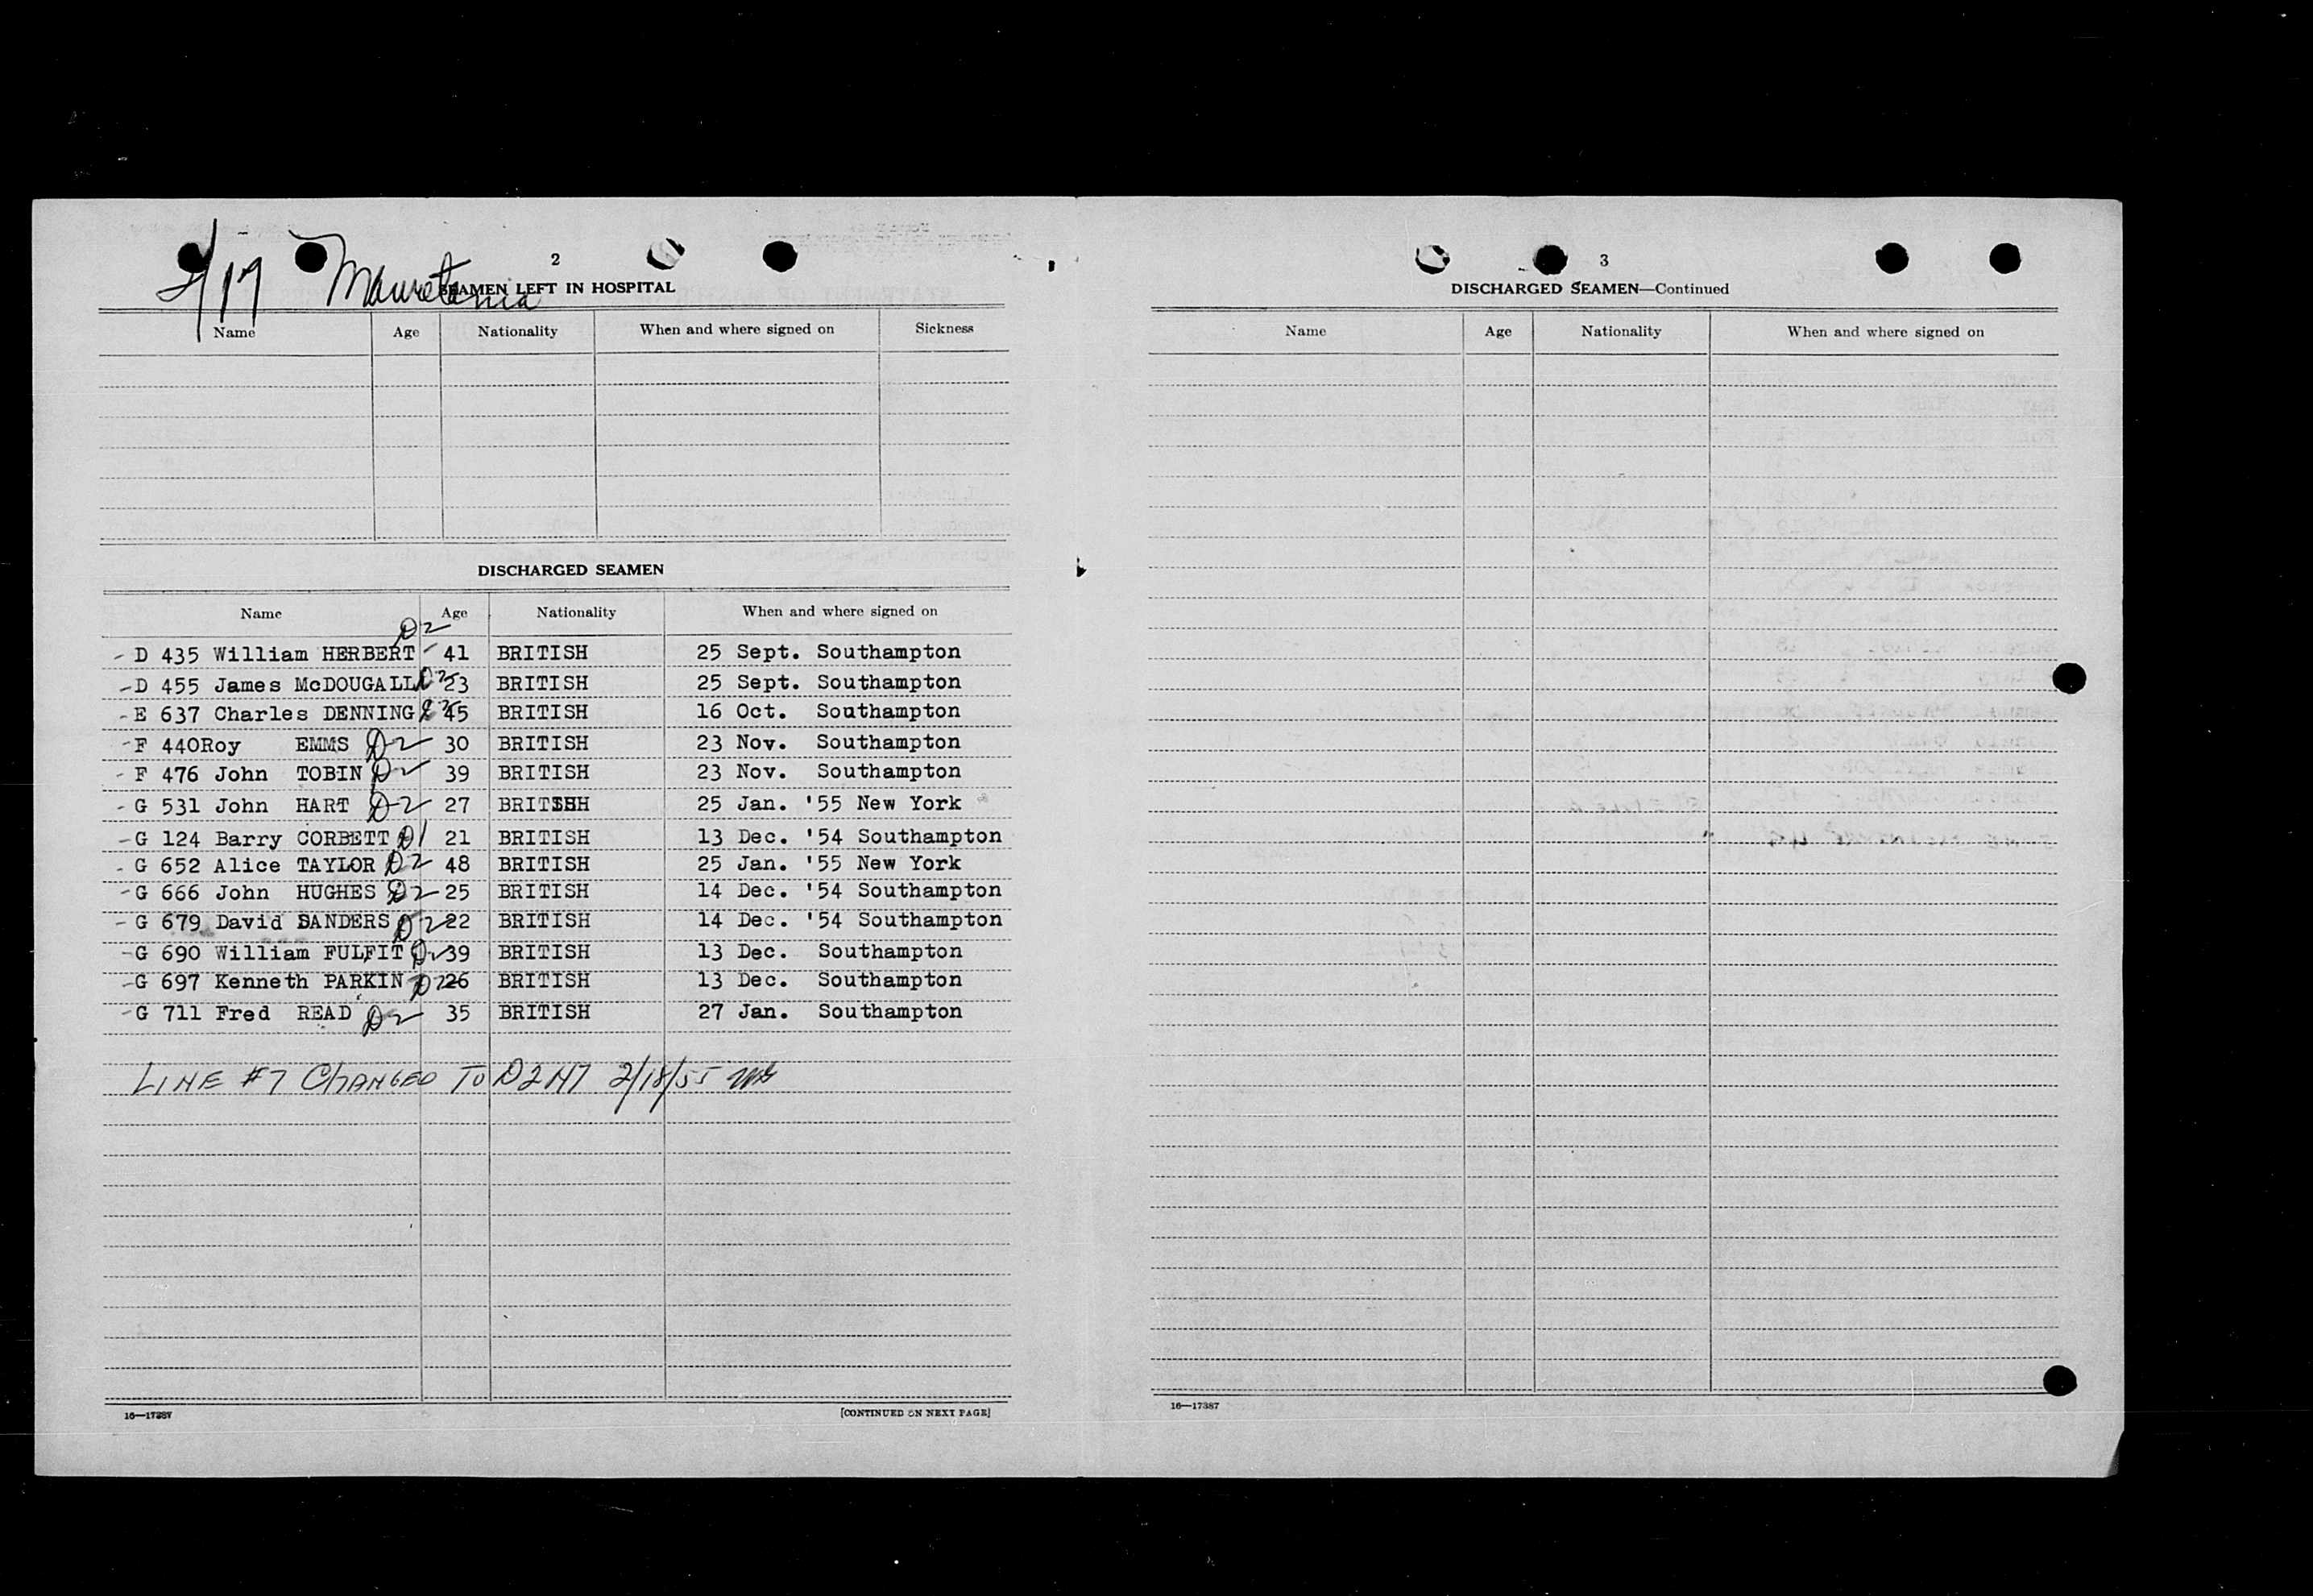 2/17 Mauretania
2
SEAMEN LEFT IN HOSPITAL
Name Age Nationality When and where signed on Sickness
DISCHARGED SEAMEN
Name Age Nationality When and where signed on
D2
- D 435 William HERBERT - 41 BRITISH 25 Sept. Southampton
- D 455 James McDOUGALL D2 23 BRITISH 25 Sept. Southampton
- E 637 Charles DENNING 45 BRITISH 16 Oct. Southampton
- F 440Roy EMMS D2 30 BRITISH 23 Nov. Southampton
- F 476 John TOBIN D2 39 BRITISH 23 Nov. Southampton
- G 531 John HART D2 27 BRITISH 25 Jan. '55 New York
- G 124 Barry CORBETT D1 21 BRITISH 13 Dec. '54 Southampton
- G 652 Alice TAYLOR D2 48 BRITISH 25 Jan. '55 New York
- G 666 John HUGHES D2 25 BRITISH 14 Dec. '54 Southampton
- G 679 David SANDERS D2 22 BRITISH 14 Dec. '54 Southampton
- G 690 William FULFIT D2 39 BRITISH 13 Dec. Southampton
- G 697 Kenneth PARKIN D2 26 BRITISH 13 Dec. Southampton
- G 711 Fred READ D2 35 BRITISH 27 Jan. Southampton
LINE #7 CHANGED TO D2 2/18/55
16—17387
[CONTINUED ON NEXT PAGE]
3
DISCHARGED SEAMEN—Continued
Name Age Nationality When and where signed on
16—17387